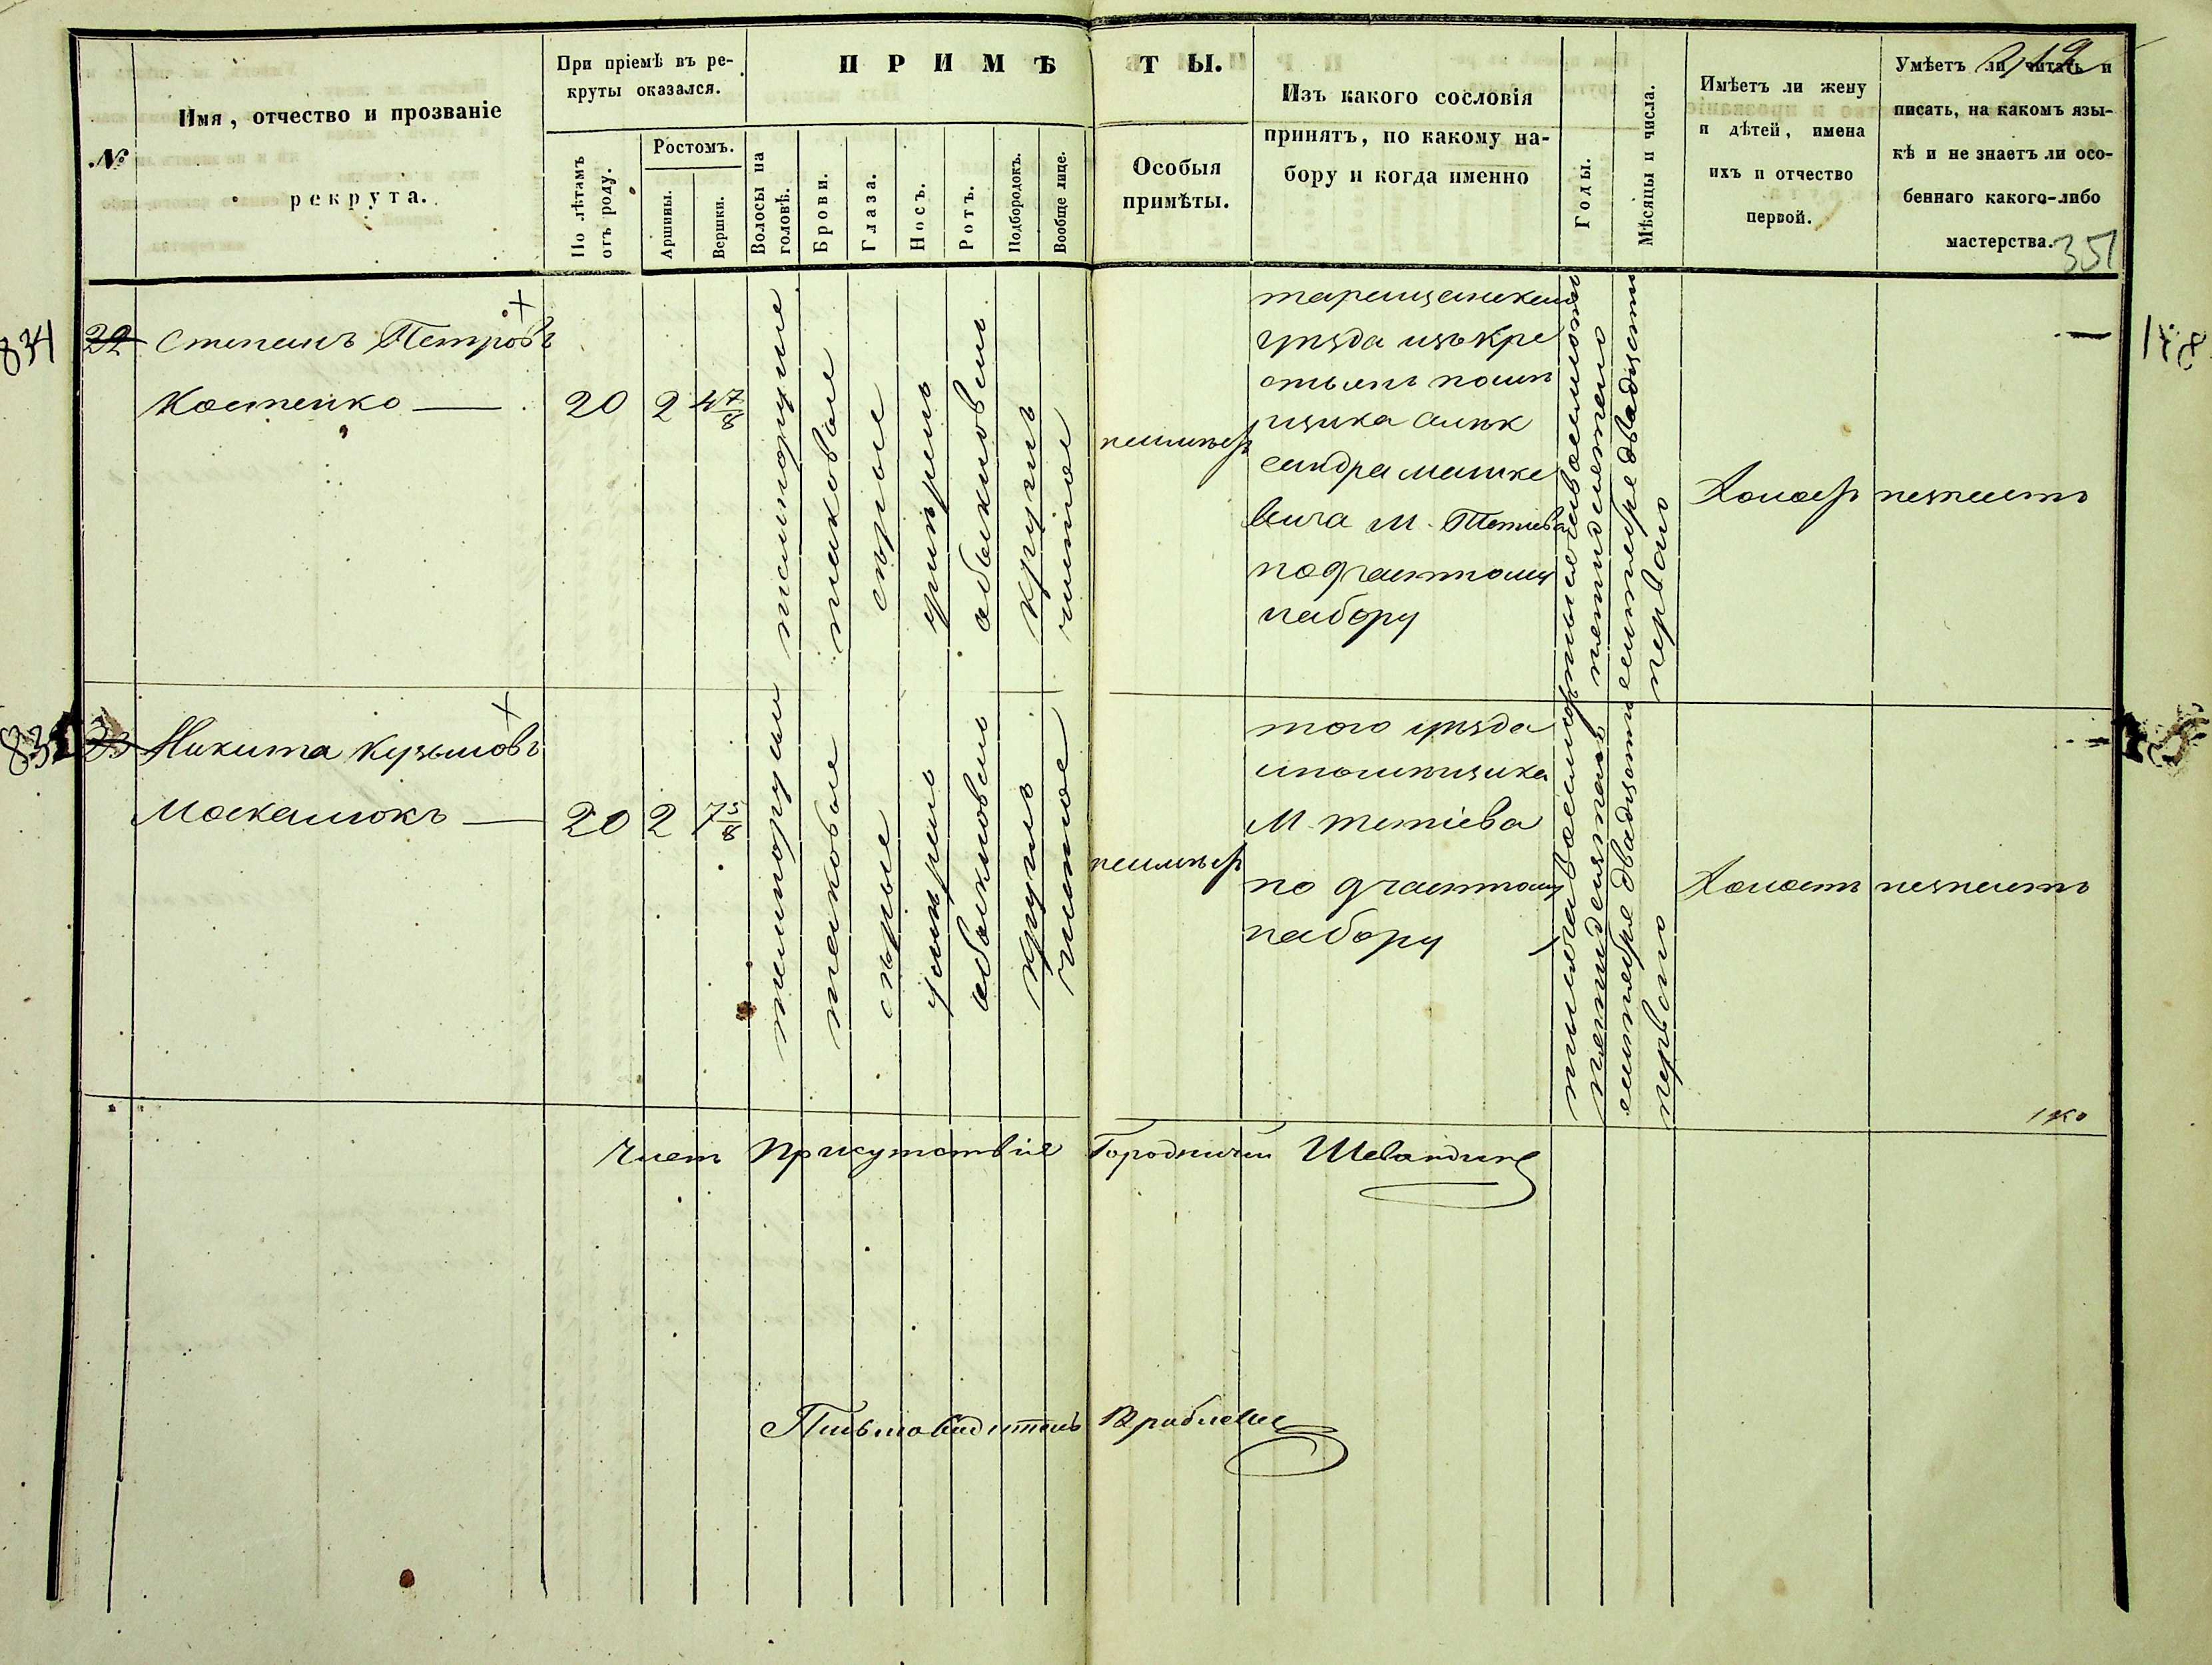 №
Имя, отчество и прозваніе
рекрута.
При пріемѣ въ ре-
круты оказался.
По лѣтамъ
отъ роду.
Ростомъ.
Аршины.
Вершки.
ПРИМѢТЫ.
Волосы на
головѣ.
Брови.
Глаза.
Носъ.
Ротъ.
Подбородокъ.
Вообще лице.
Особыя
примѣты.
Изъ какого сословія
принятъ, по какому на-
бору и когда именно
Годы.
Мѣсяцы и числа.
Имѣетъ ли жену
и дѣтей, имена
ихъ и отчество
первой.
Умѣетъ ли читать и
писать, на какомъ язы-
кѣ и не знаетъ ли осо-
беннаго какого-либо
мастерства.
351
834
22
Степанъ Петровъ
Костенко
20
2
4 7/8
темнорусые
таковые
сѣрые
умѣрен
обыкновен
круглъ
чистое
неимѣетъ
таращанскаго
уѣзда изъ кре
стьянъ помѣ
щика Алек
сандра
вича М. Тетіева
по 9 частному
набору
тысяча восемьсотъ
пятидесятаго
сентября двадцать
перваго
Холостъ
незнаетъ
23
Никита Кузьмовъ
Москалюкъ
20
2
7 5/8
темнорусы
таковые
сѣрые
умѣрен
обыкновен
круглъ
чистое
неимѣетъ
того уѣзда
и помѣщика
М. тетіева
по 9 частному
набору
тысяча восемьсотъ
пятидесятаго
сентября двадцать
перваго
Холостъ
незнаетъ
Членъ Присутствія Городничій
Письмоводитель